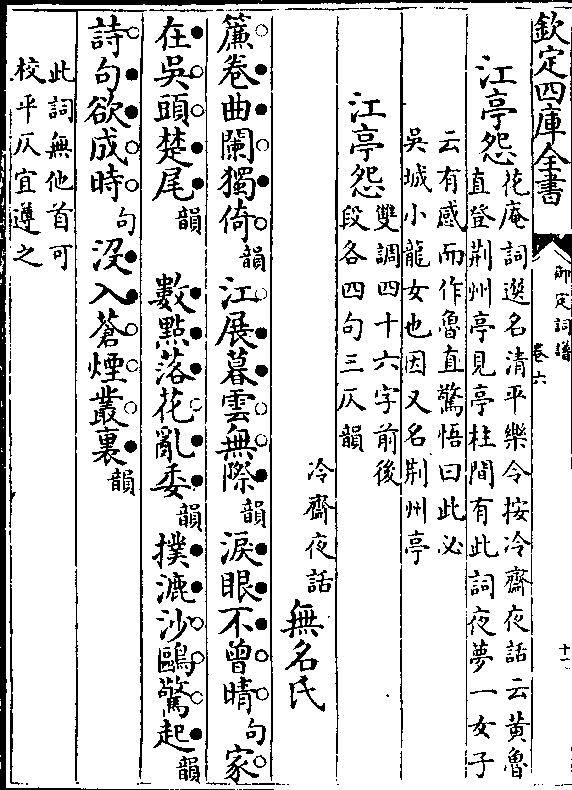 欽定四庫全書
御定詞譜
卷六
十一
江亭怨
花庵詞選名清平樂令按冷齋夜話云黃魯
直登荆州亭見亭柱間有此詞夜夢一女子
云有感而作魯直驚悟曰此必
吳城小龍女也因又名荆州亭
江亭怨
雙調四十六字前後
段各四句三仄韻
冷齋夜話
無名氏
簾卷曲闌獨倚韻江展暮雲無際韻淚眼不曾晴句家
在吳頭楚尾韻 數點落花亂委韻撲漉沙鷗驚起韻
詩句欲成時句没入蒼煙叢裏韻
此詞無他首可
校平仄宜遵之